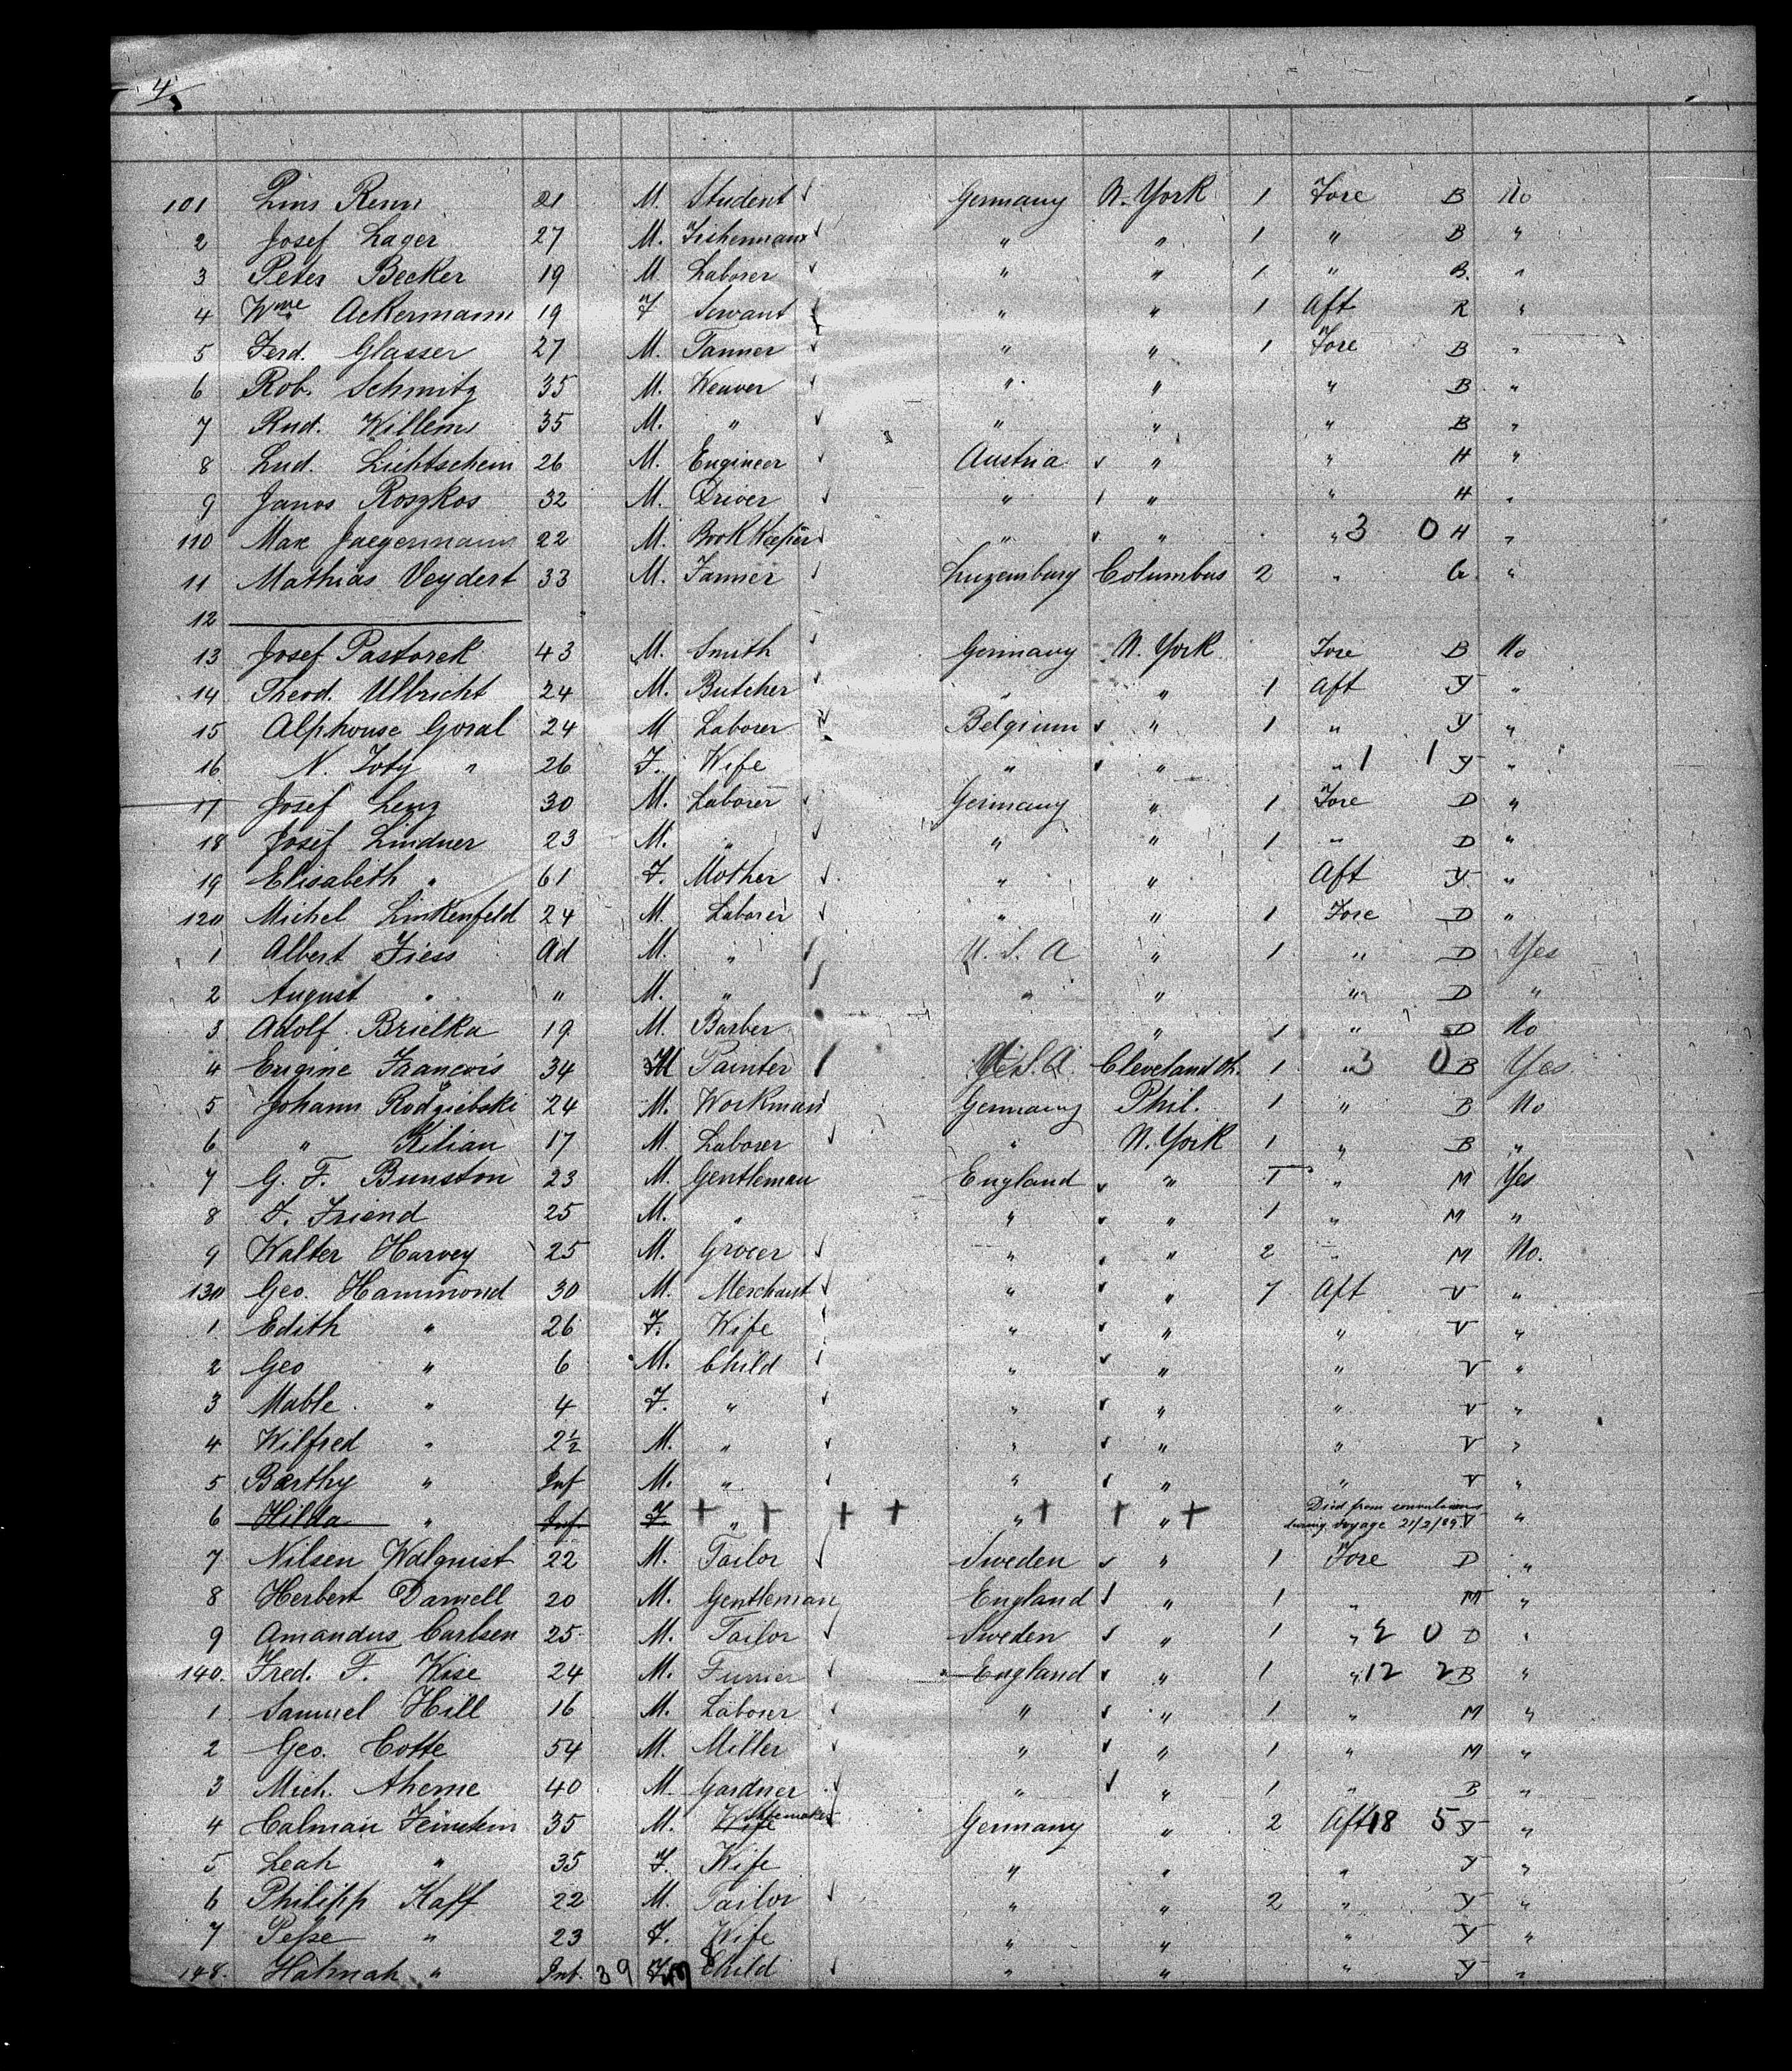 4
101 Renn 21 M. Student Germany N. York 1 Fore B No
2 Josef Lager 27 M. Fishermann " " 1 " B "
3 Peter Becker 19 M Laborer " " 1 " B. "
4 Wme Ackermann 19 F Servant " " 1 Aft R "
5 Ferd. Glasser 27 M. Tanner " " 1 Fore B "
6 Rob. Schmitz 35 M. Weaver " " " B "
7 Rud. Willems 35 M. " " " " B "
8 Lud. Lichtschein 26 M. Engineer Austria " " H "
9 Janos Roszkos 32 M. Driver " " " H "
110 Max Jaegermann 22 M. BookKeeper " " " 3 0 H "
11 Mathias Veydert 33 M. Luxemburg Columbus 2 " G. "
12
13 Josef Pastorek 43 M. Smith Germany N. York Fore B No
14 Theod. Ulbricht 24 M. Butcher " " 1 Aft Y "
15 Alphonse Goral 24 M Laborer Belgium " 1 " Y "
16 N. " 26 F. Wife " " " 1 1 Y "
17 Josef Lenz 30 M. Laborer Germany " 1 Fore D "
18 Josef Lindner 23 M. " " " 1 " D "
19 Elisabeth " 61 F. Mother " " Aft Y "
120 Michel Linkenfeld 24 M. Laborer " " 1 Fore D "
1 Albert Fiess Ad M. " U. S. A " 1 " D Yes
2 August " " M. " " " " D "
3 Adolf Brielka 19 M. Barber " 1 " D No
4 Eugine Francois 34 M Painter U.S.A. Cleveland Oh. 1 " 3 0 B Yes
5 Johann 24 M. Workman Germany Phil. 1 " B No
6 " Kilian 17 M. Laborer " N. York 1 " B "
7 G. F. Bunston 23 M. Gentleman England " 1 " M Yes
8 F. Friend 25 M. " " " 1 " M "
9 Walter Harvey 25 M. Grocer " " 2 " M No.
130 Geo. Hammond 30 M. Merchant " " 7 Aft V "
1 Edith " 26 F. Wife " " " V "
2 Geo " 6 M. Child " " " V "
3 Mable " 4 F. " " " " V "
4 Wilfred " 2½ M. " " " " V "
5 Barthy " Inf M. " " " " V "
6 Hilda " Inf. F " " " Died from convulsions during voyage 21/2/89. V "
7 Nilsen Walquist 22 M. Tailor Sweden " 1 Fore D "
8 Herbert Darnell 20 M. Gentleman England " 1 " M "
9 Amandus Carlsen 25 M. Tailor Sweden " 1 " 2 0 D "
140. Fred. F. Wise 24 M. England " 1 " 12 2 B "
1 Samuel Hill 16 M. Laborer " " 1 " M "
2 Geo. Cotte 54 M. Miller " " 1 " M "
3 Mich. Aherne 40 M Gardner " " 1 " B "
4 Calman Feinstein 35 M. Wife Shoemaker Germany " 2 Aft 18 5 Y "
5 Leah " 35 F. Wife " " " Y "
6 Philipp Kaff 22 M. Tailor " " 2 " Y "
7 Pepe " 23 F. Wife " " " Y "
148. Hahnah " Inf. 39 F. Child " " " Y "